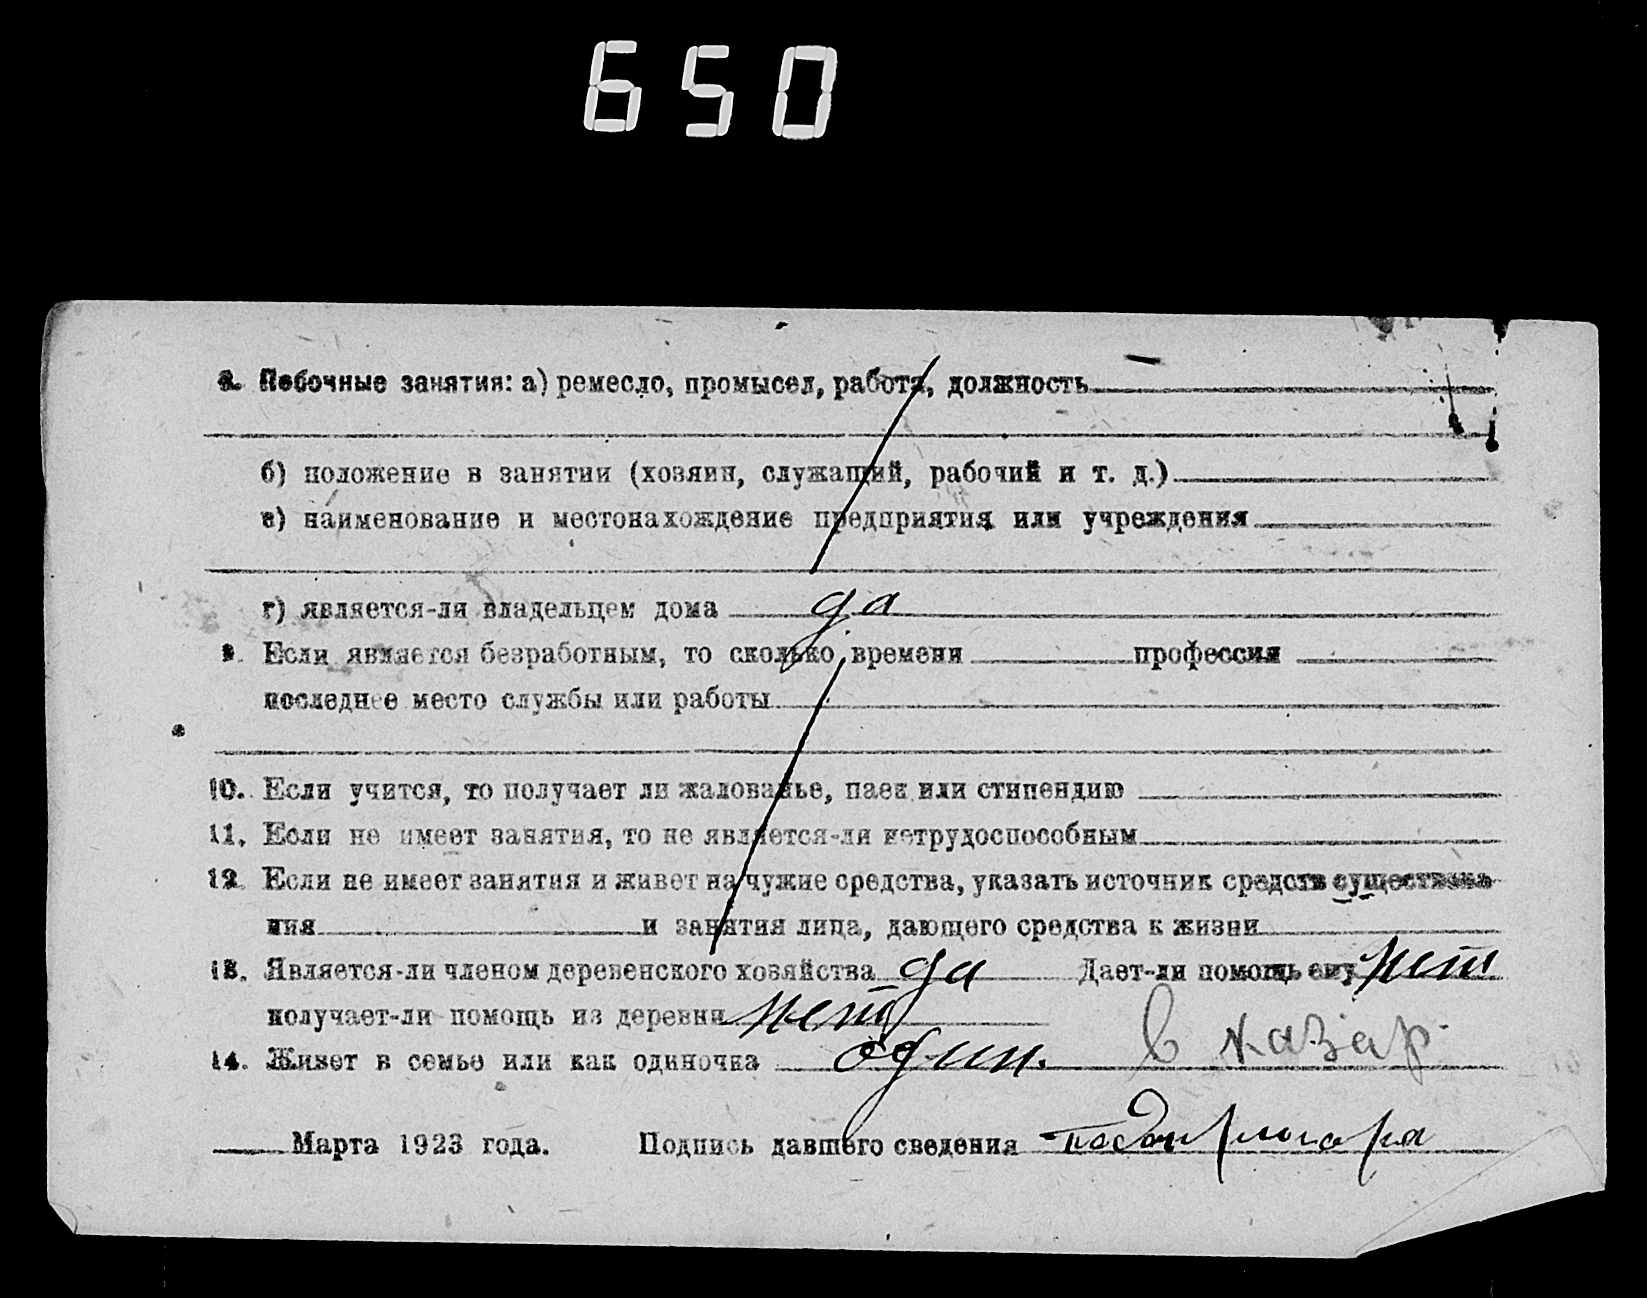 650
8. Побочные занятия: а) ремесло, промысел, работа, должность
б) положение в занятии (хозяин, служащий, рабочий и т. д.)
в) наименование и местонахождение предприятия или учреждения
г) является-ли владельцем дома да
9. Если является безработным, то сколько времени профессия
последнее место службы или работы
10. Если учится, то получает ли жалованье, паек или стипендию
11. Если не имеет занятия, то не является-ли нетрудоспособным
12. Если не имеет занятия и живет на чужие средства, указать источник средств существова-
ния и занятия лица, дающего средства к жизни
13. Является-ли членом деревенского хозяйства да Дает-ли помощь ему нет
получает-ли помощь из деревни нет
14. Живет в семье или как одиночка один. в казар.
Марта 1923 года. Подпись давшего сведения